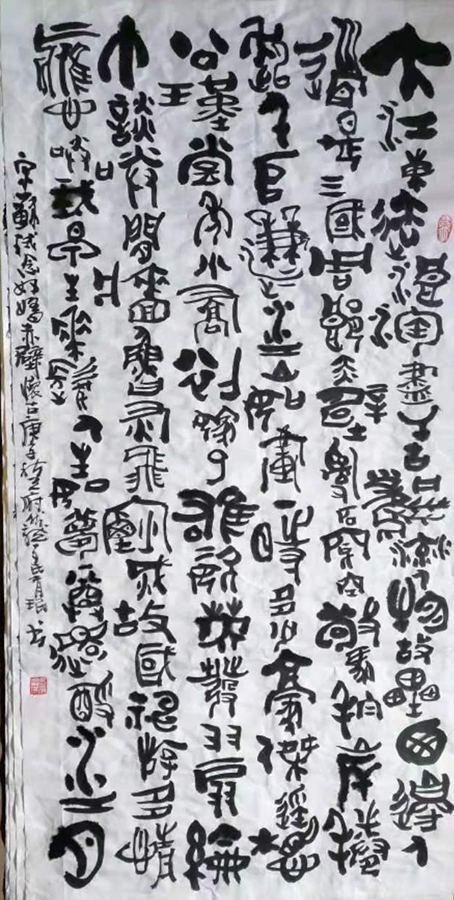 大江東去浪淘盡千古風流人物故壘西邊人
道是三國周郎赤壁亂石穿空驚濤拍岸捲
起千堆雪江山如畫一時多少豪傑遙想
公瑾當年小喬初嫁了雄姿英發羽扇綸
巾談笑間檣櫓灰飛煙滅故國神遊多情
應笑我早生華髮人生如夢一尊還酹江月
宋蘇軾念奴嬌赤壁懷古庚子書